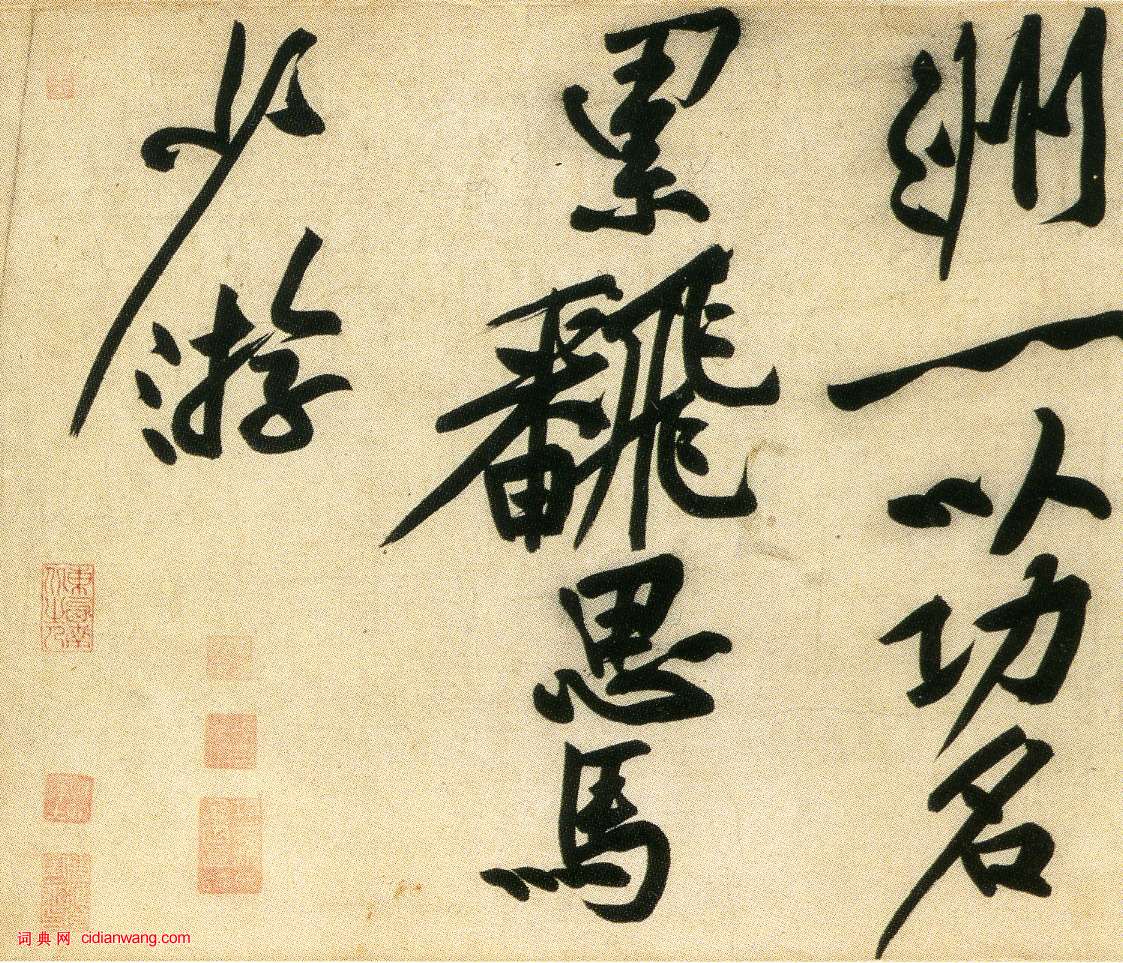 洲一以功名
累飜思馬
少游
词典网 cidianwang.com